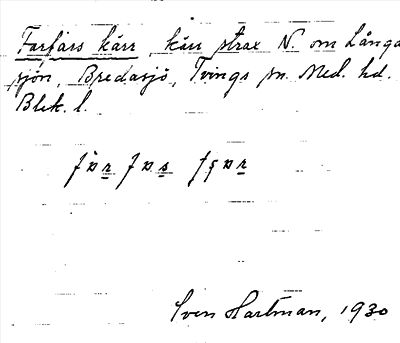 Farfars kärr, kärr strax N. om Långa
sjön, Bredasjö, Tvings sn. Med. hd.
Blek. l.
Sven Hartman, 1930